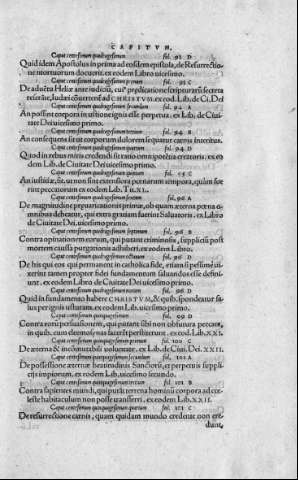 CAPITVM,
Caput centesimum quadragesimum fol. 92 D
Quid idem Apostolus in prima ad eosdem epistola, de Resurrectione mortuorum docuerit. ex eodem Libro vicesimo.
Caput centesimum quadragesimum primum fol. 93 C
De aduētu Heliæ ante iudiciū, cuiꝰ prædicatione scripturarū secreta
reserāte, Iudæi cōuertēd ad CHRISTVM. ex eod. Lib. de Ci. Dei
Caput centesimum quadragesimum secundum fol. 94 A
An possint corpora in vstione ignis esse perpetua. ex Lib. de Ciuitate Dei vicesimo primo.
Caput centesimum quadragesimum tertium fol. 94 B
An consequens sit vt corporum dolorem sequatur carnis interitus.
Caput centesimum quadragesimum quartum fol. 94 D
Quod in rebus miris credendi sit ratio omnipotētia creatoris. ex eodem Lib. de Ciuitate Dei vicesimo primo.
Caput centesimum quadragesimum quintum fol. 95 C
An iustitiæ sit, vt non sint extensiora pœnarum tempora, quàm fuerint peccatorum ex eodem Lib. XXI.
Caput centesimum quadragesimum sextum fol. 96 A
De magnitudine præuaricationis primæ, ob quam æterna pœna omnibus debeatur, qui extra gratiam fuerint Saluatoris. ex Libro
de Ciuitate Dei vicesimo primo.
Caput centesimum quadragesimum septimum fol. 96 B
Contra opinationem eorum, qui putant criminosis, suppliciis post
mortem causa purgationis adhiberi. ex eodem Libro.
Caput centesimum quadragesimum octauum fol. 96 D
De his qui eos qui permanent in catholica fide, etiam si pessimè vixerint tamen propter fidei fundamentum saluandos esse definiunt. ex eodem Libro de Ciuitate Dei vicesimo primo.
Caput centesimum quadragesimum nonum fol. 98 D
Quid sit in fundamento habere CHRISTVM, & quib. spondeatur salus
per ignis vsturam. ex eodem Lib. vicesimo primo.
Caput centesimum quinquagesimum fol. 99 D
Contra eorū persuasionem, qui putant sibi non obfutura peccata,
in quib. cum eleemosynas facerēt perstiterunt. ex eod. Lib. XXI.
Caput centesimum quinquagesimum primum fol. 100 C
De æterna & incommutabili voluntate. ex Lib. de Ciui. Dei. XXII.
Caput centesimum quinquagesimum secundum fol. 101 A
De possessione æternæ beatitudinis Sanctoris, et perpetuis suppliciis impiorum. ex eodem Lib. vicesimo secundo.
Caput centesimum quinquagesimum tertium fol. 101 B
Contra sapientes mundi, qui putāt terrena hominū corpora ad cœleste habitaculum non posse transferri. ex eodem Lib. XXII.
Caput centesimum quinquagesimum quartum fol. 101 C
De resurrectione carnis, quam quidam mundo credente non credunt,